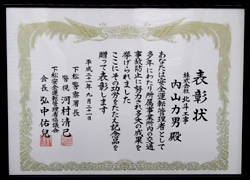 表彰状
株式会社 北斗工事
内山力男 殿
あなたは安全運転管理者として
多年にわたり所属事業所内の交通
事故防止に努力され多大の成果を
挙げられました
ここにその功労をたたえ記念品を
贈って表彰します
平成二十一年九月二十一日
下松警察署長
警視 河村清巳
下松安全運転管理者協議会
会長 弘中佑児